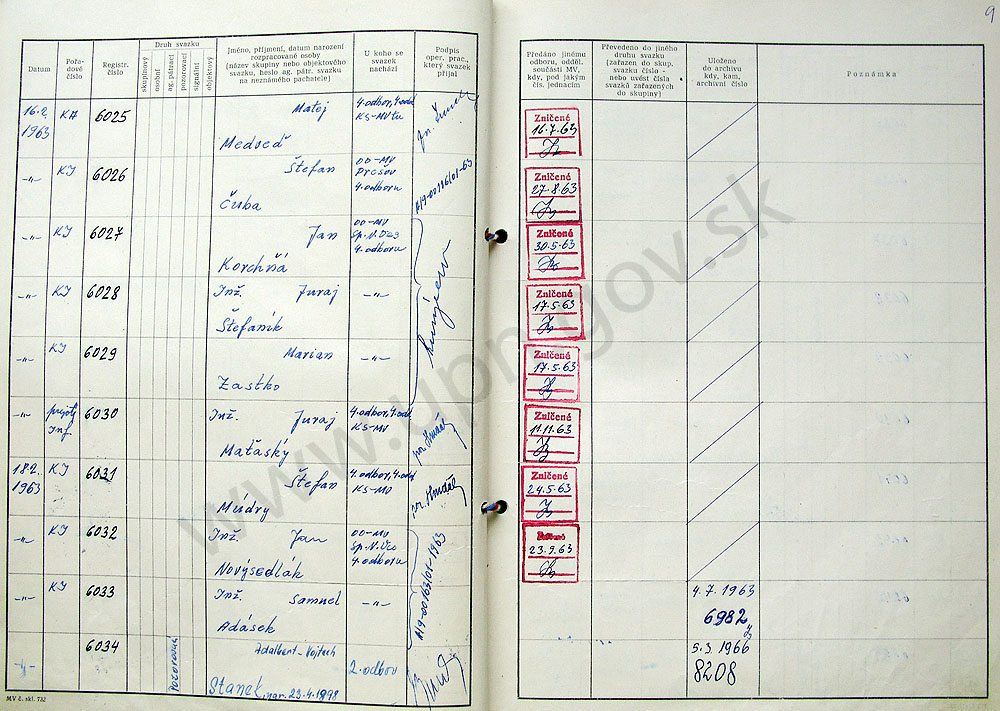 9
Datum
Pořadové číslo
Registr. číslo
Druh svazku
skupinový
osobní
ag. pátrací
pozorovací
signální
objektový
Jméno, příjmení, datum narození
rozpracované osoby
(název skupiny nebo objektového
svazku, heslo ag. pátr. svazku
na neznámého pachatele)
U koho se
svazek
nachází
Podpis
oper. prac.,
který svazek
přijal
Předáno jinému
odboru, odděl.
součásti MV,
kdy, pod jakým
čís. jednacím
Převedeno do jiného
druhu svazku
(zařazen do skup.
svazku číslo -
nebo uvést čísla
svazků zařazených
do skupiny)
Uloženo
do archivu
kdy, kam,
archivní číslo
Poznámka
16.2. 1963 KA 6025 Matej Medveď 4.odbor, 4.odd KS-MV
Zničené 16.7.63
-„- KI 6026 Štefan Čuba OO-MV Prešov 4.odboru A/9-00196/01-63
Zničené 27.8.63
-„- KI 6027 Jan Korchňá OO-MV Sp.N.Ves 4.odboru
Zničené 30.5.63
-„- KI 6028 Inž. Juraj Štefaník -„-
Zničené 17.5.63
-„- KI 6029 Marian Zastko -„-
Zničené 17.5.63
-„- Inf. 6030 Inž. Juraj Maťaský 4.odbor, 4.odd KS-MV
Zničené 11.11.63
18.2. 1963 KI 6031 Štefan Múdry 4.odbor, 4.odd KS-MV
Zničené 24.5.63
-„- KI 6032 Inž. Jan Novýsedlák OO-MV Sp.N.Ves 4.odboru A/9-00163/01-1963
23.9.63
-„- KI 6033 Inž. Samuel Adásek -„-
4.7.1963
6982
-„- 6034 Pozorovací Adalbert-Vojtech Stanek, nar. 23.4.1898 2.odbor
5.3.1966
8208
MV č. skl. 732
www.upn.gov.sk